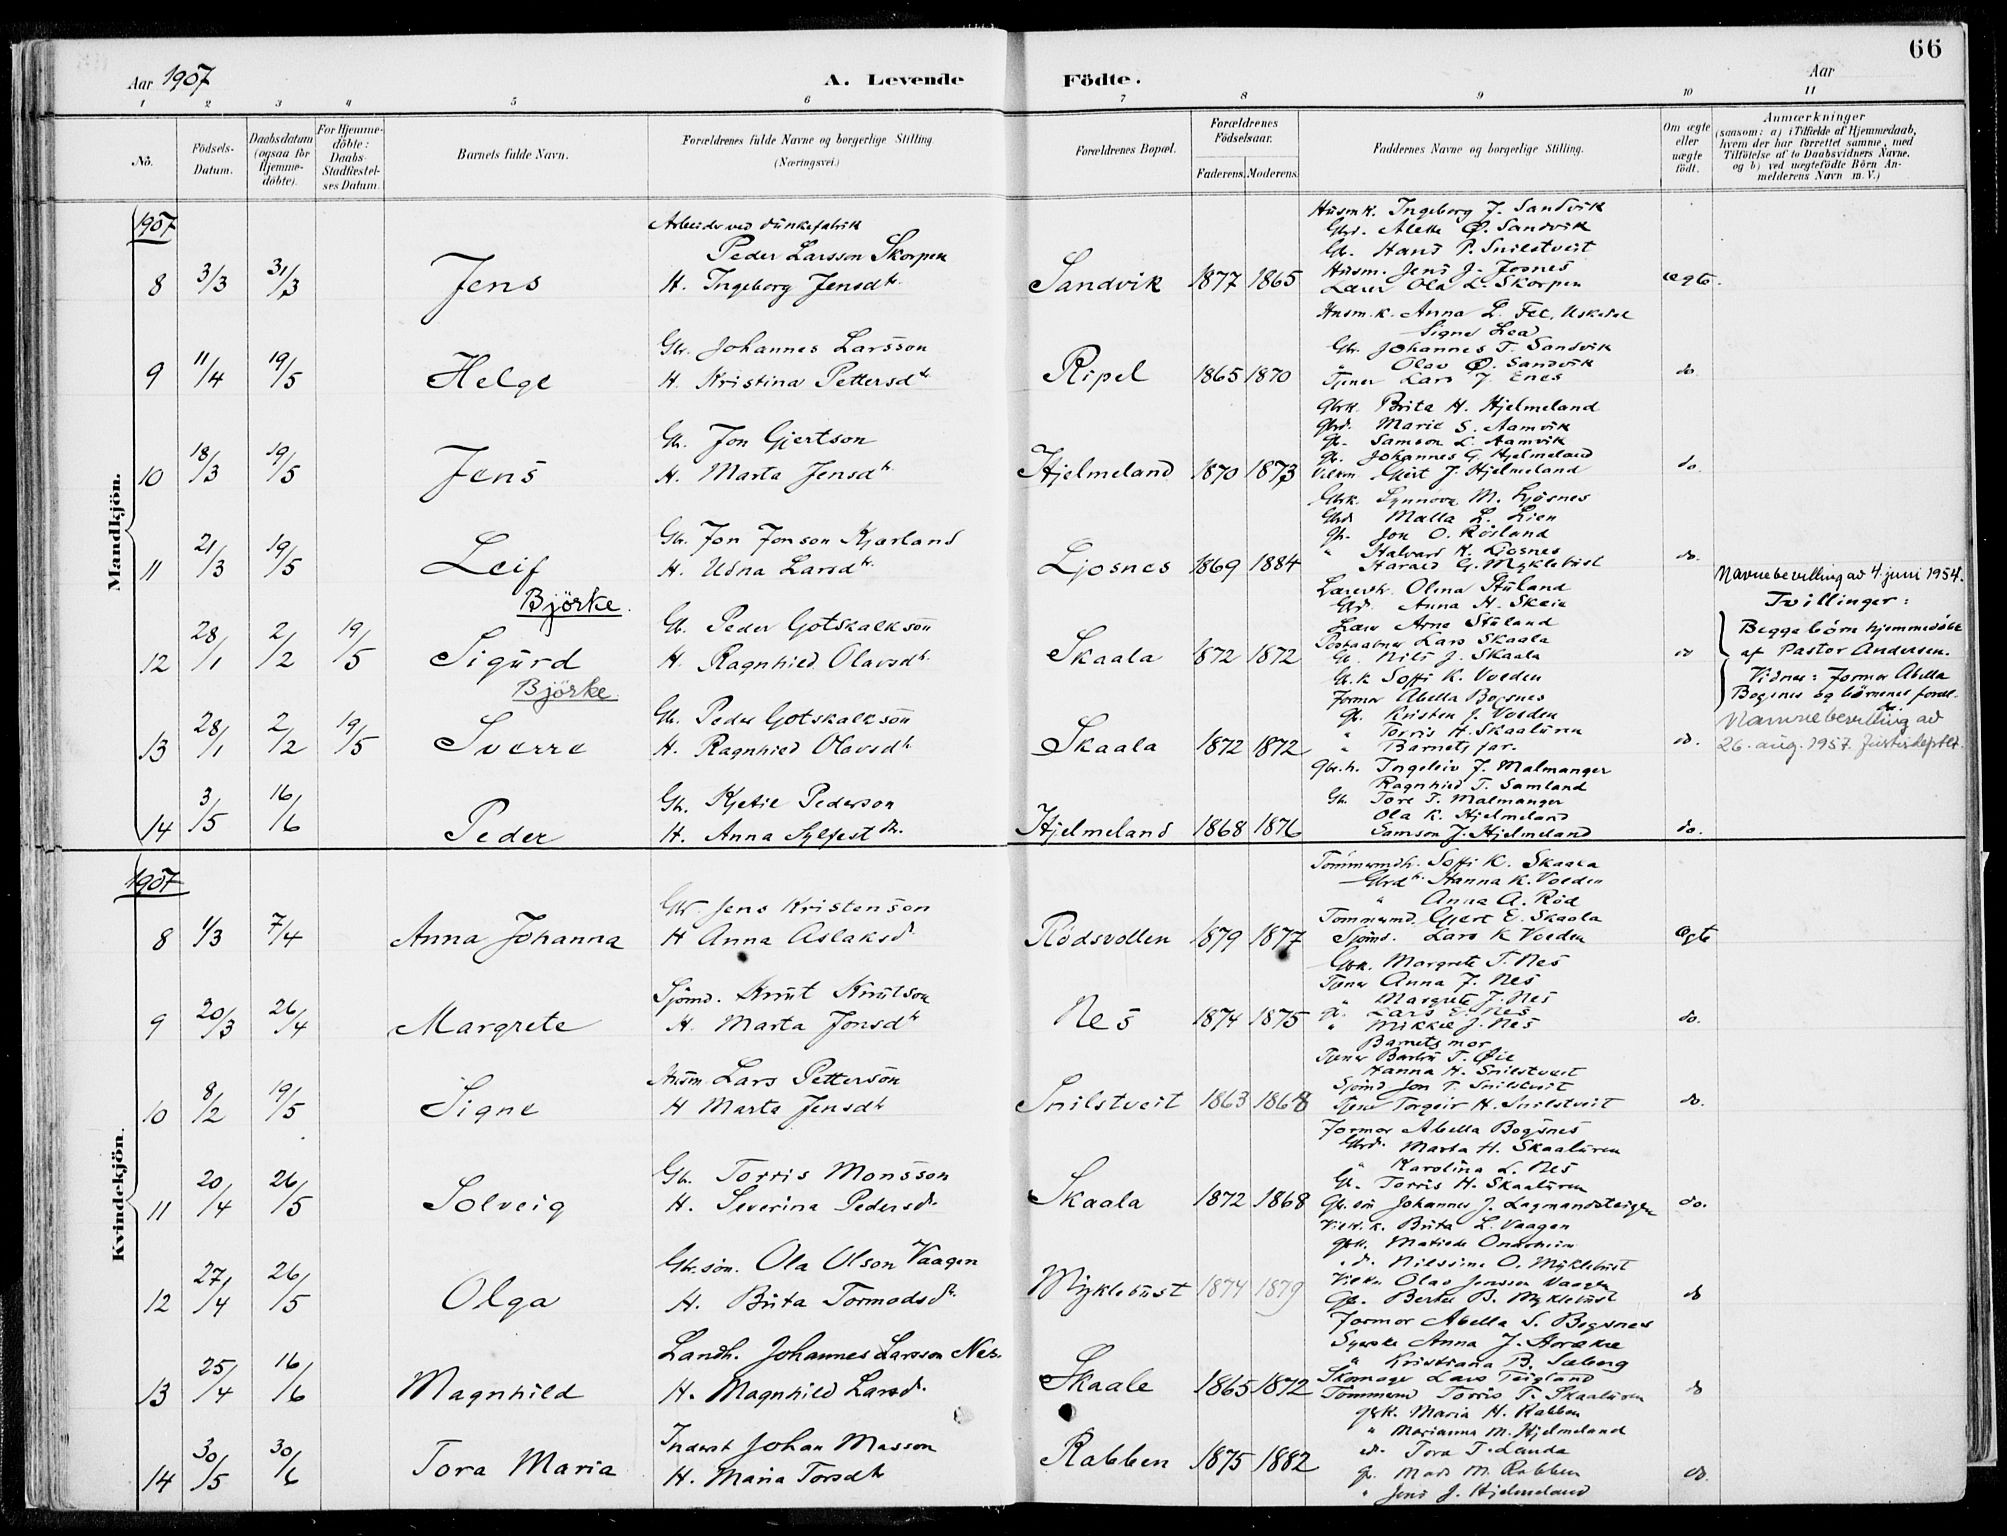 66
Aar 1907 A. Levende Födte. Aar
1 2 3 4 5 6 7 8 9 10 11
No.
Födsels-Datum.
Daabsdatum (ogsaa for Hjemme-döbte).
For Hjemme-döbte: Daabs-Stadfæstel-ses Datum.
Barnets fulde Navn.
Forældrenes fulde Navne og borgerlige Stilling (Næringsvei.)
Forældrenes Bopæl.
Forældrenes Födselsaar.
Faderens. Moderens.
Faddernes Navne og borgerlige Stilling.
Om ægte eller uægte födt.
Anmærkninger
(saasom: a) i Tilfælde af Hjemmedaab,
hvem der har forrettet samme, med
Tilföielse af to Daabsvidners Navne,
og b) ved uægtefödte Börn An-
melderens Navn m. V.)
Mandkjön.
1907
8 3/3 31/3 Jens
Arbeider ved
Peder Larsson Skorpen
H. Ingeborg Jensdtr.
Sandvik 1877 1865
Husmk. Ingeborg J. Sandvik
Gbrd. Alette Ø. Sandvik
Gb. Hans P. Snilstveit
Husm. Jens J. Josnes
Lærer Ola L. Skorpen
ægte.
9 11/4 19/5 Helge
Gbr. Johannes Larsson
H. Kristina Pettersdtr
Ripel 1865 1870
Husm.k. Anna L. Fet, Uskedal
Signe Lea
Gbr. Johannes T. Sandvik
" Olav Ø. Sandvik
Tjener Lars J. Enes
do.
10 18/3 19/5 Jens
Gb. Jon Gjertson
H. Marta Jensdtr.
Hjelmeland 1870 1873
Gbrk. Brita H. Hjelmeland
Gbrd. Marie S. Aamvik
Gb. Samson L. Aamvik
Gb. Johannes G. Hjelmeland
Gjert J. Hjelmeland
do.
11 21/3 19/5 Leif
Gbr. Jon Jonson Kjærland
H. Udna Larsdtr.
Ljosnes 1869 1884
Gbrk. Synnova M. Ljosnes
Gbrd. Malla L. Lien
Gb. Jon O. Røsland
" Halvard K. Ljosnes
Harald G. Myklebust
do.
Björke.
12 28/1 2/2 19/5 Sigurd
Gb. Peder Gotskalkson
H. Ragnhild Olavsdtr.
Skaala 1872 1872
Olina Støland
Gbrd. Anna H. Skeie
Lærer Arne Støland
Postaabner Lars Skaala
Gb. Nils J. Skaala
do
Navnebevilling av 4. juni 1954.
Tvillinger:
Begge börn hjemmedöbt
af Pastor Andersen.
Vidner: Jormor Abella
Bogsnes og börnenes foræl-
dre
Björke.
13 28/1 2/2 19/5 Sverre
Gb. Peder Gotskalkson
H. Ragnhild Olavsdtr
Skaala 1872 1872
Gb.k. Soffi K. Voeden
Jormor Abella Bogsnes
Gb. Kristen J. Voeden
" Torris H. Skaaluren
" Barnets far.
do.
Namnebevilling av
26. aug. 1957. Justisdeptet.
14 3/5 16/6 Peder
Gb. Kjetil Pederson
H. Anna Sylfestdtr.
Hjelmeland 1868 1876
Gbr.k. Ingeleiv J. Malmanger
Ragnhild T. Samland
Gb. Tore T. Malmanger
Ola K. Hjelmeland
Samson J. Hjelmeland
do.
Kvindekjön.
1907
8 1/3 7/4 Anna Johanna
Gbr. Jens Kristenson
H Anna Aslaksdr
Rødsvollen 1879 1877
Soffi K. Skaala
Gbrdtr. Hanna K. Voeden
" Anna A. Rød
Tømmermd. Gjert E. Skaala
Sjömd. Lars K Voeden
ægte
9 20/3 26/4 Margrete
Sjömd. Knut Knutson
H. Marta Jonsdtr
Nes 1874 1875
Gbk. Margrete T. Nes
Tjener Anna J. Nes
" Margrete J. Nes
Gb. Lars E. Nes
" Mikkel J. Nes
do.
10 8/2 19/5 Signe
Husm. Lars Petterson
H Marta Jensdtr
Snilstveit 1863 1868
Barnets mor
Tjener T. Øie
Hanna H. Snilstveit
Sjömd Jon P. Snilstveit
Tjener Torgeir H. Snilstveit
do.
11 20/4 26/5 Solveig
Gb. Torris Monsson
H. Severina Pedersdtr.
Skaala 1872 1868
Jormor Abella Bogsnes
Gbrd. Marta H. Skaaluren
" Karolina L. Nes
Gb. Torris H. Skaaluren
Gb. sön Johannes J. Lagmandsteigen
do.
12 27/4 26/5 Olga
Gbr.sön. Ola Olson Vaagen
H. Brita Tormodsdtr.
Myklebust 1874 1879
Brita L. Vaagen
Gbk. Matilde Onarheim
" d. Nilssine O. Myklebust
Olav Jonsson Vaagen
Gb. Bertel B. Myklebust
do
13 25/4 16/6 Magnhild
Landh. Johannes Larsson Nes.
H. Magnhild Larsdr.
Skaale 1865 1872
Jormor Abella S. Bogsnes
Syerske Anna J.
" Kristiana B. Sæberg
Skomager Lars Teigland
Tømmermd Torris T. Skaaluren
do
14 30/5 30/6 Tora Maria
Inderst Johan Masson
H. Maria Torsdtr
Rabben 1875 1882
Gbk. Maria H. Rabben
" Marianna M. Hjelmeland
d. Tora T. Landa
Gb. Mads M. Rabben
" Jens J. Hjelmeland
do.